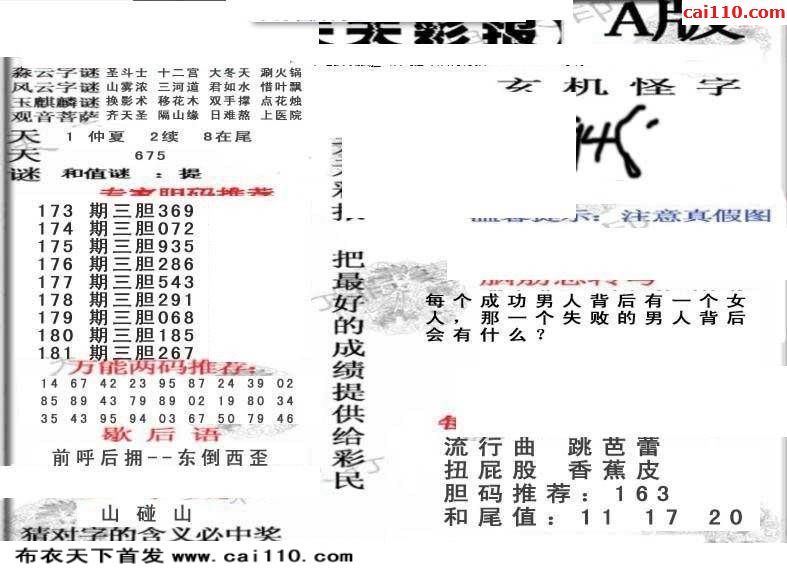 cai110.com
天天彩报
A版
森云字谜 圣斗士 十二宫 大冬天 涮火锅
风云字谜 山雾浓 三河道 君如水 惜叶飘
玉麒麟谜 换影术 移花木 双手撑 点花烛
观音菩萨 齐天圣 隔山缘 日难熬 上医院
天 1 仲夏 2续 8在尾
天 675
谜 和值谜 : 提
专家胆码推荐
173 期三胆369
174 期三胆072
175 期三胆935
176 期三胆286
177 期三胆543
178 期三胆291
179 期三胆068
180 期三胆185
181 期三胆267
万能两码推荐:
14 67 42 23 95 87 24 39 02
85 89 43 79 89 02 19 80 34
35 43 95 94 03 67 50 79 46
歇后语
前呼后拥--东倒西歪
山碰山
猜对字的含义必中奖
布衣天下首发 www.cai110.com
把最好的成绩提供给彩民
玄机怪字
温馨提示: 注意真假图
脑筋急转弯
每个成功男人背后有一个女
人，那一个失败的男人背后
会有什么？
流行曲 跳芭蕾
扭屁股 香蕉皮
胆码推荐: 163
和尾值: 11 17 20